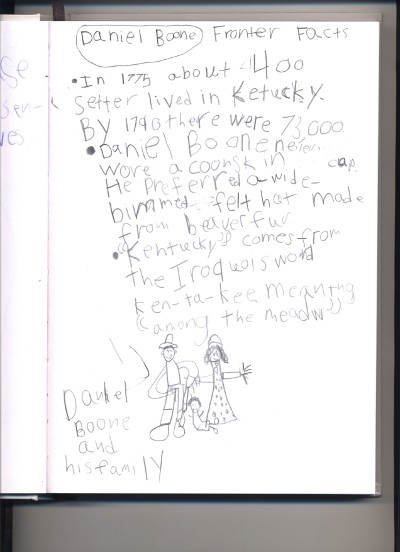 se
sen-
ves
Daniel Boone Fronter Facts
• In 1775 about 400
Setter lived in Ketucky.
By 1790 there were 73,000.
• Daniel Boone never
wore a coonskin cap.
He preferred a wide-
bimmed felt hat made
from beaver fur
• "Kentucky" comes from
the Iroquois word
Ken-ta-kee meaning
"among the meadw"
Daniel
Boone
and
his family